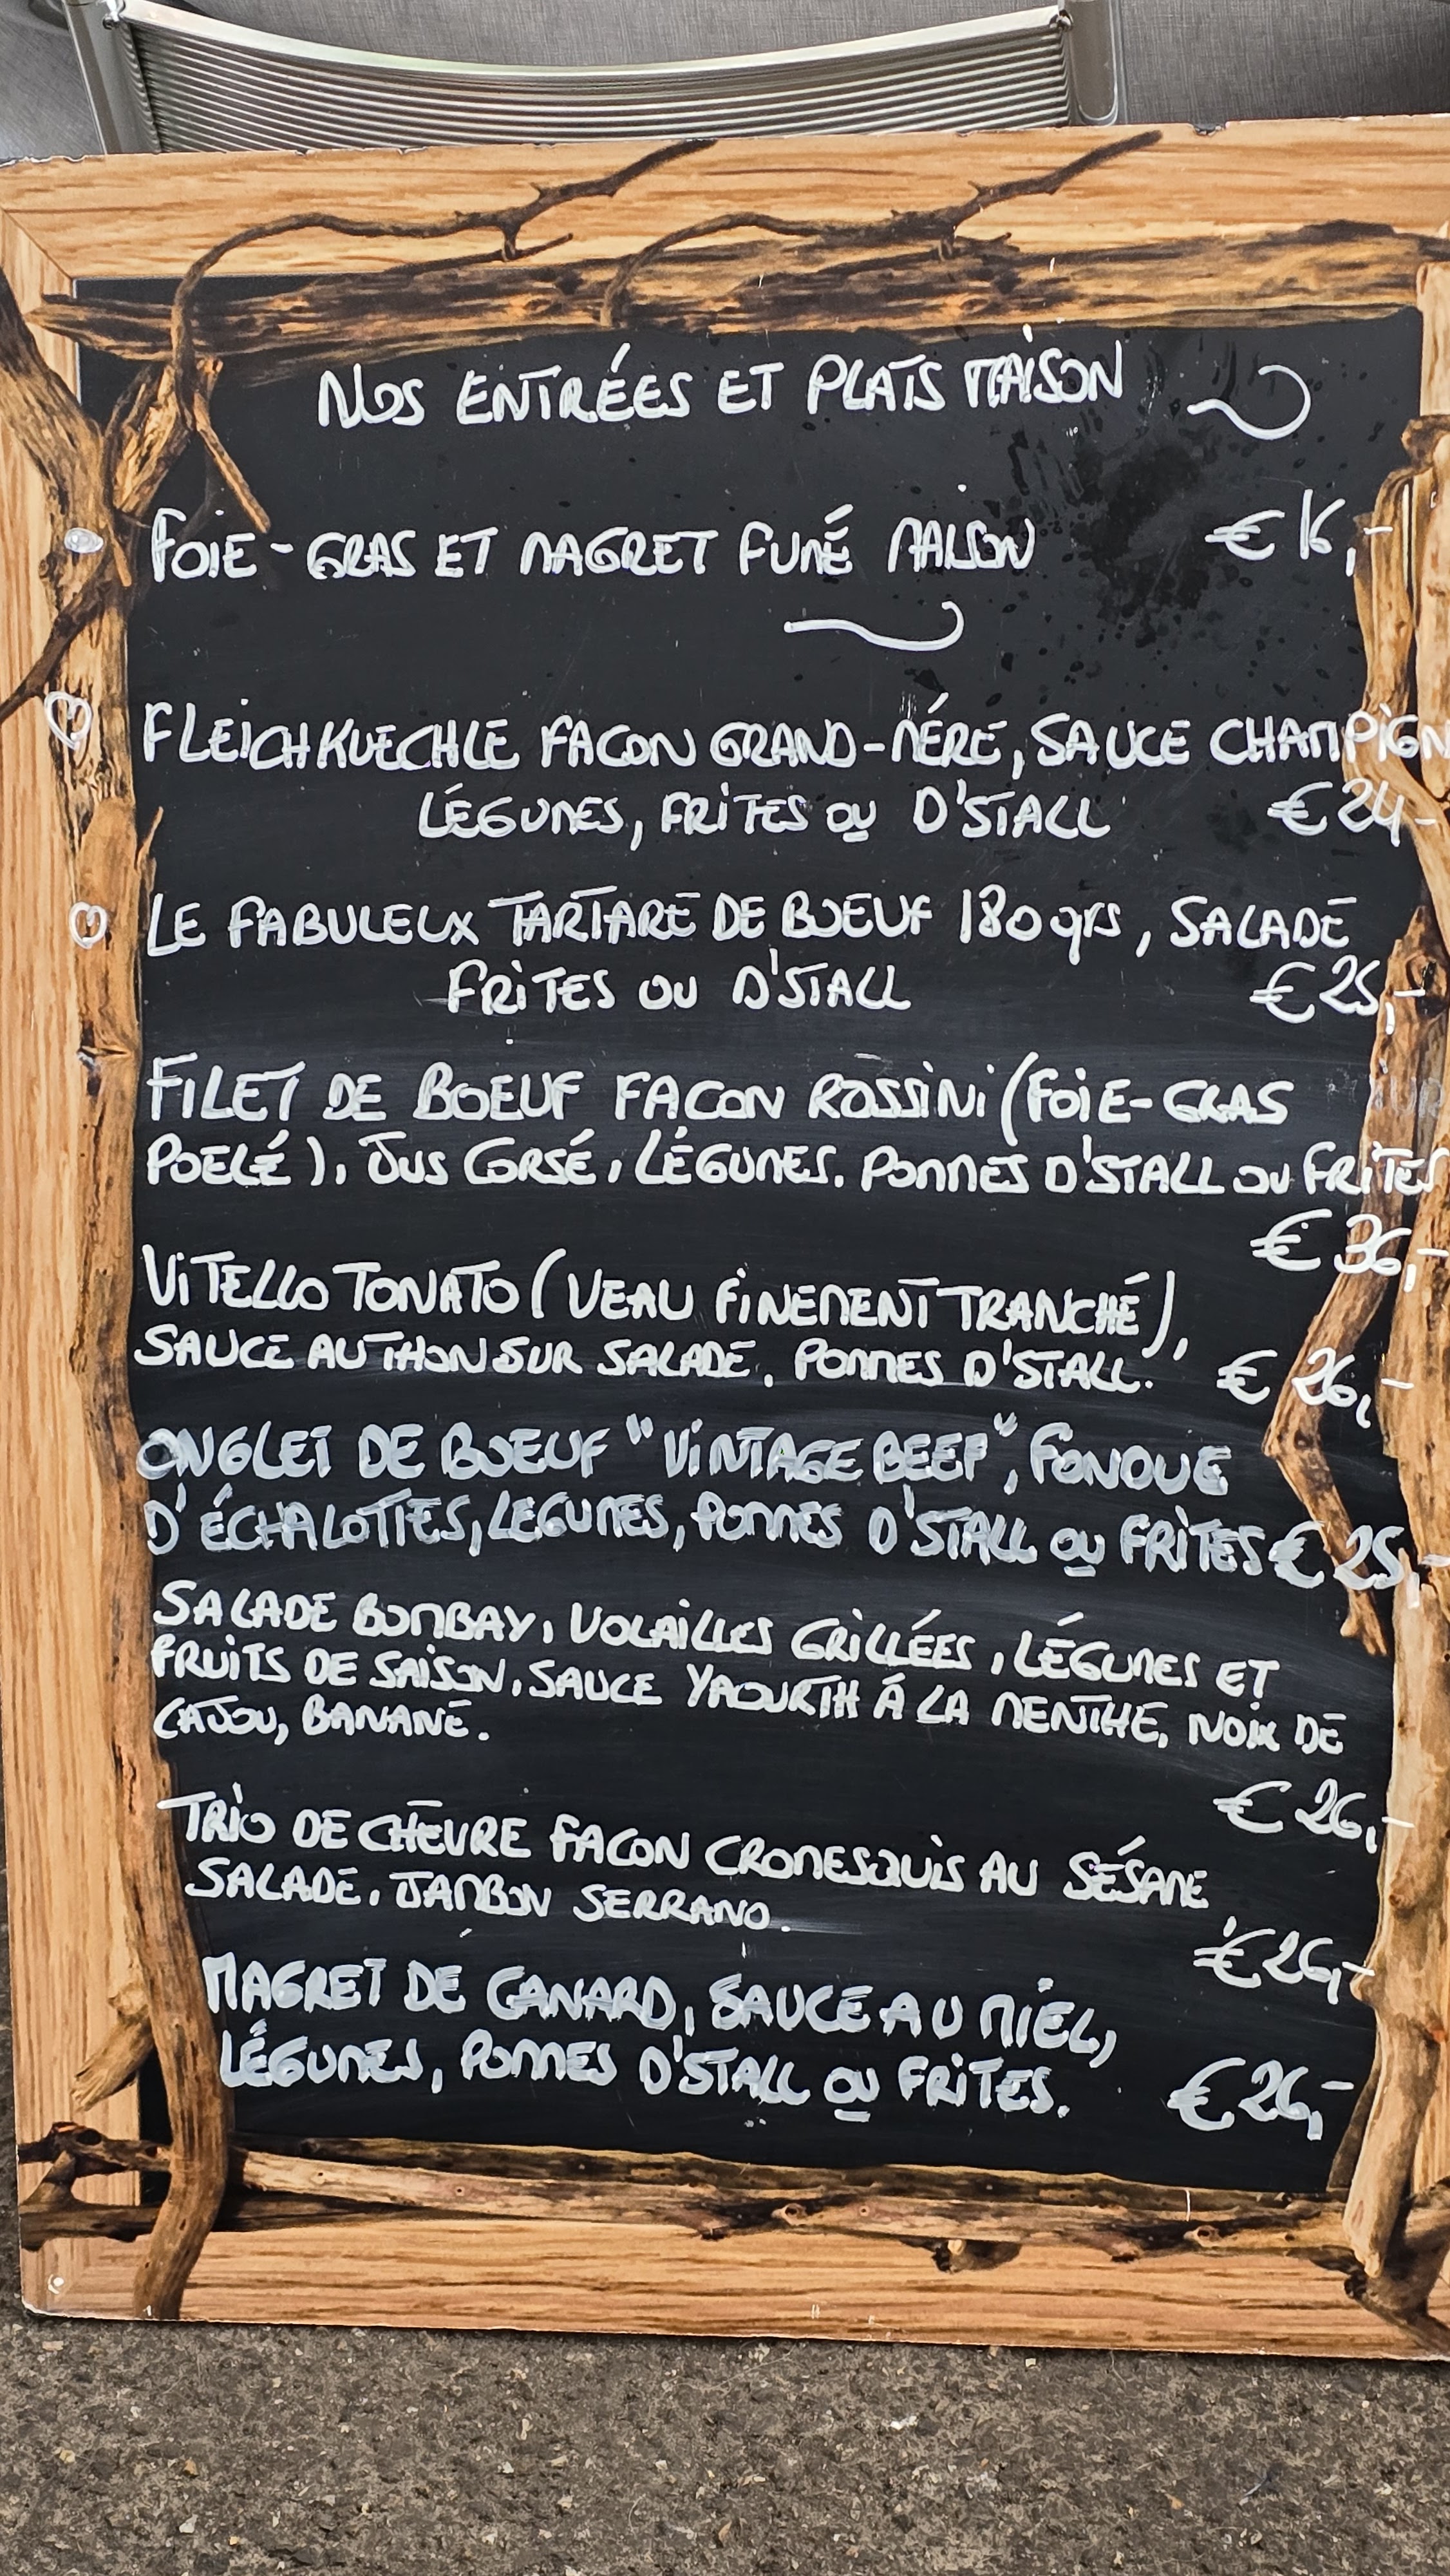 NOS ENTRÉES ET PLATS MAISON
FOIE-GRAS ET MAGRET FUMÉ MAISON € 16,-
FLEICHKUECHLE FACON GRAND-MÉRE, SAUCE CHAMPIGN
LÉGUMES, FRITES OU D'STALL € 24-
LE FABULEUX TARTARE DE BOEUF 180 grs, SALADE
FRITES OU D'STALL € 25,-
FILET DE BOEUF FACON ROSSINI (FOIE-GRAS
POELÉ), JUS CORSÉ, LÉGUMES. POMMES D'STALL OU FRITES
€ 36,-
VITELLO TONATO (VEAU FINEMENT TRANCHÉ),
SAUCE AU THON SUR SALADE, POMMES D'STALL. € 26,-
ONGLET DE BOEUF "VINTAGE BEEF", FONDUE
D'ÉCHALOTTES, LEGUMES, POMMES D'STALL OU FRITES € 25,-
SALADE BOMBAY, VOLAILLES GRILLÉES, LÉGUMES ET
FRUITS DE SAISON, SAUCE YAOURTH À LA MENTHE, NOIX DE
CAJOU, BANANE.
€ 26,-
TRIO DE CHEVRE FACON CROMESQUIS AU SÉSAME,
SALADE, JAMBON SERRANO.
€ 26,-
MAGRET DE CANARD, SAUCE AU MIEL,
LÉGUMES, POMMES D'STALL OU FRITES. € 26,-